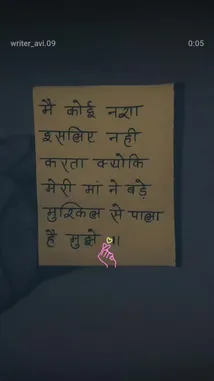 writer_avi.09
0:05
मै कोई नशा
इसलिए नही
करता क्योकि
मेरी मां ने बड़े
मुश्किल से पाला
है मुझे ॥